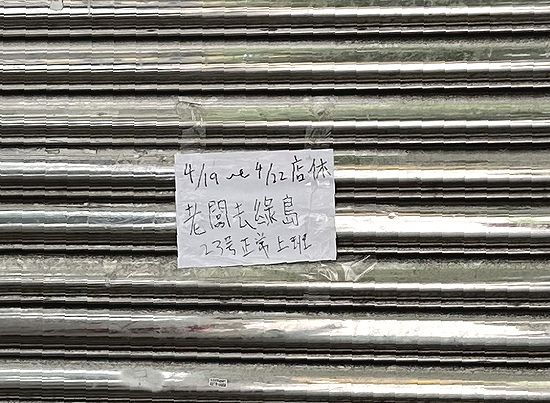 4/19~4/22店休
老闆去綠島
23号正常上班